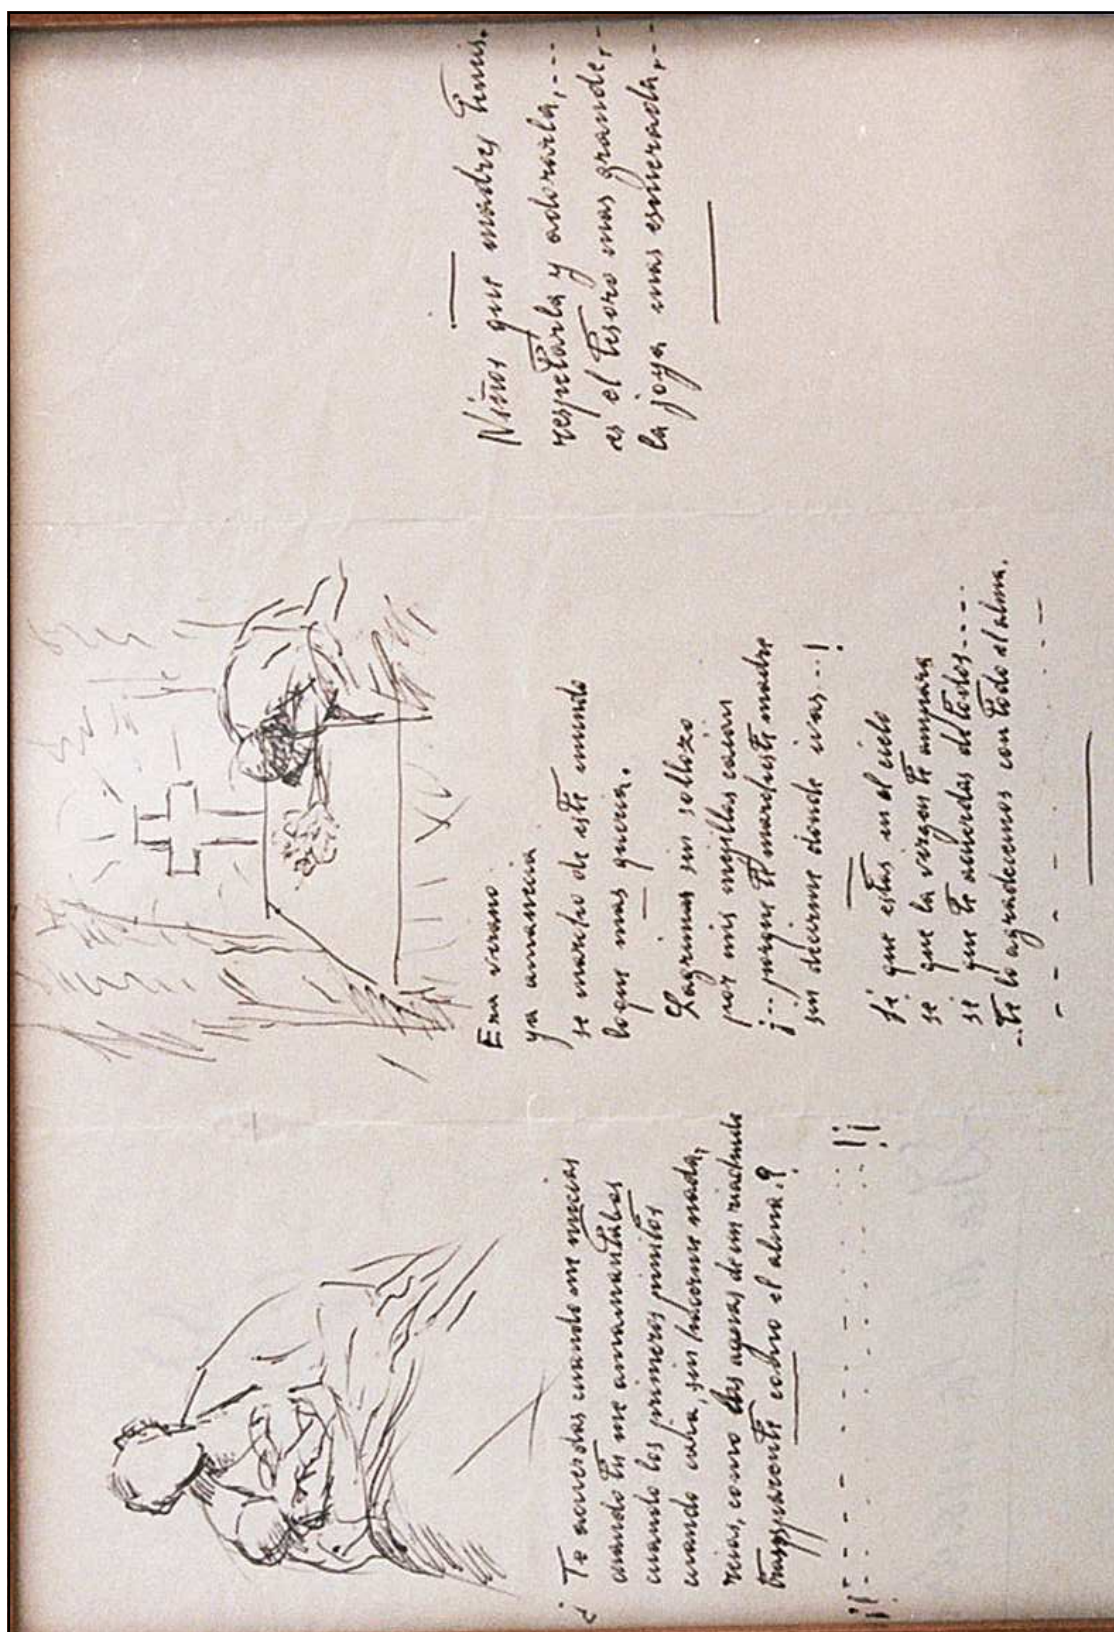 ¿ Te acuerdas cuando me mecias
cuando tú me amamantabas
cuando los primeros pinitos
cuando caia, sin hacerme nada,
reias, como las aguas de un riachuelo
transparente como el alma.?
Era verano
ya amanecia
se marcho de este mundo
lo que mas queria.
Lagrimas sin sollozo
por mis mejillas caian
¡--- porque te marchaste madre
sin decirme donde ivas --!
Sé que estas en el cielo
se que la virgen te ampara
se que te acuerdas de todos----
--Te lo agradecemos con todo el alma.
Niños que madres teneis.
respetarla y adorarla,---
es el tesoro mas grande,--
la joya mas esmerada,--